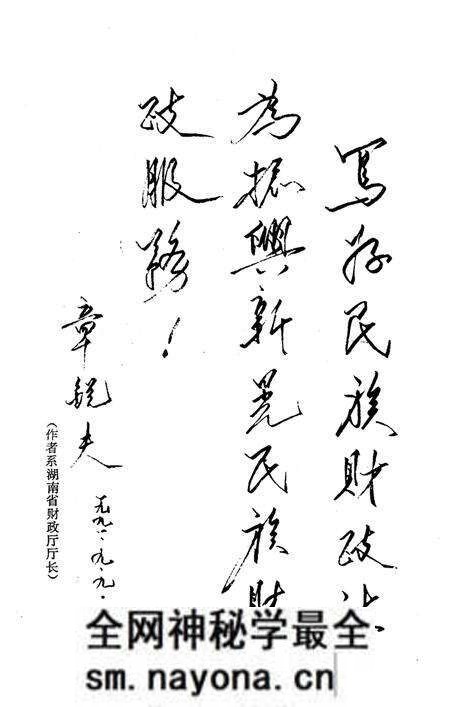 写好民族财政
为振兴新晃民族财
政服务！
章锐夫
一九九一.九.九.
（作者系湖南省财政厅厅长）
全网神秘学最全
sm.nayona.cn